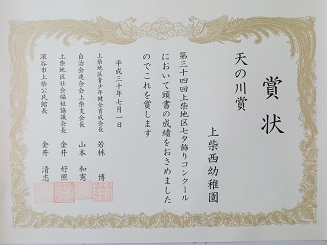 賞状
天の川賞
上柴西幼稚園
第三十四回上柴地区七夕飾りコンクール
において頭書の成績をおさめました
のでこれを賞します
平成三十年七月一日
上柴地区青少年健全育成会長 若林 博
自治会連合会上柴支会長 山本 和憲
上柴地区社会福祉協議会長 金井 好照
深谷市上柴公民館長 金井 清志